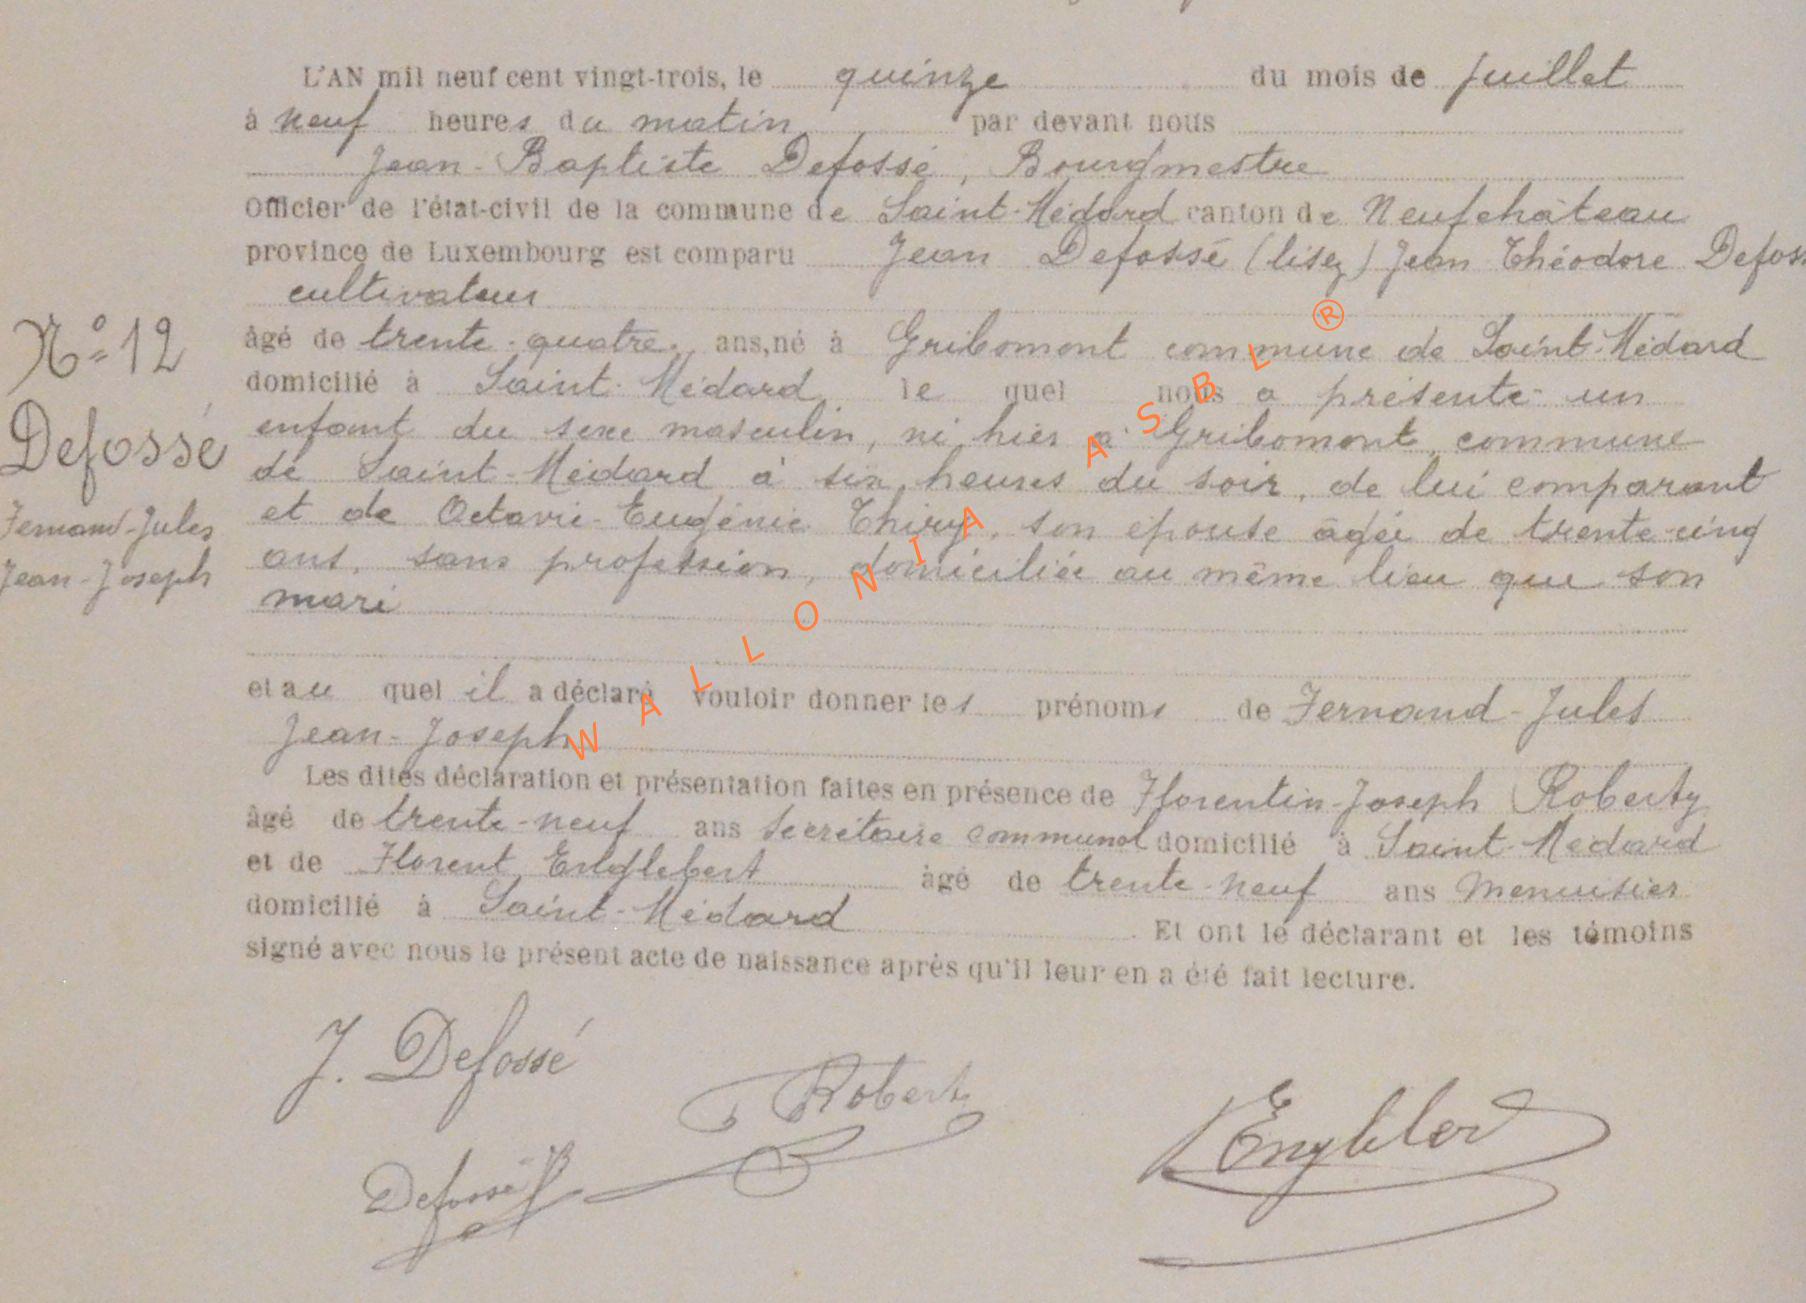 L'AN mil neuf cent vingt-trois, le quinze du mois de juillet
à neuf heures du matin par devant nous
Jean-Baptiste Defossé, Bourgmestre
Officier de l'état-civil de la commune de Saint-Médard canton de Neufchâteau
province de Luxembourg est comparu Jean Defossé (lisez) Jean Théodore Defoss
cultivateur
N° 12
âgé de trente-quatre ans, né à Gribomont commune de Saint-Médard
domicilié à Saint-Médard le quel nous a présenté un
Defossé
enfant du sexe masculin, né hier à Gribomont, commune
de Saint-Médard à six heures du soir, de lui comparant
Fernand-Jules
et de Octavie-Eugénie Thiry, son épouse âgée de trente-cinq
Jean-Joseph
ans, sans profession, domiciliée au même lieu que son
mari
et au quel il a déclaré vouloir donner les prénoms de Fernand-Jules
Jean-Joseph
Les dites déclaration et présentation faites en présence de Florentin-Joseph Roberty
âgé de trente-neuf ans secrétaire communal domicilié à Saint-Médard
et de Florent Englebert âgé de trente-neuf ans menuisier
domicilié à Saint-Médard. Et ont le déclarant et les témoins
signé avec nous le présent acte de naissance après qu'il leur en a été fait lecture.
J. Defossé
Roberty
Defossé
WALLONIA ASBL ®